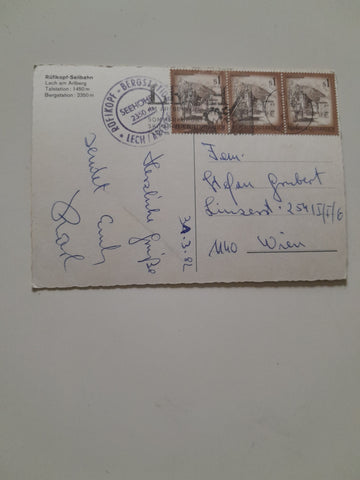 Rüfikopf-Seilbahn
Lech am Arlberg
Talstation: 1450 m
Bergstation: 2350 m
RÜFIKOPF - BERGSTATION
SEEHÖHE
2350 m
LECH / ARLBERG
S1
S1
S1
Herzliche Grüße
sendet Euch
Karl
31.3.82
Fam.
Stefan
Linzerst. 254/I/1/6
1140 Wien